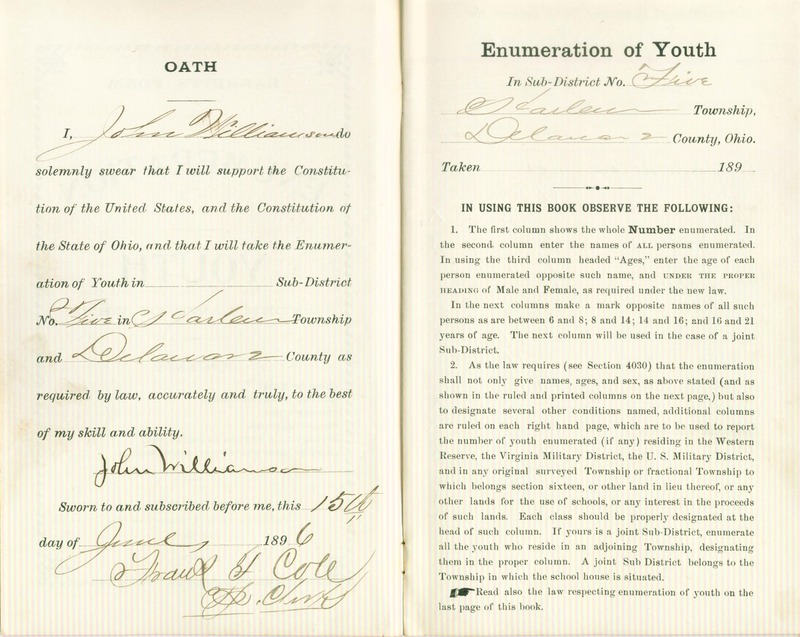 OATH
I, John Williamson do
solemnly swear that I will support the Constitu-
tion of the United States, and the Constitution of
the State of Ohio, and that I will take the Enumer-
ation of Youth in Sub-District
No. Five in Harlem Township
and Delaware County as
required by law, accurately and truly, to the best
of my skill and ability.
John Williamson
Sworn to and subscribed before me, this 15th
day of June, 1896
Frank H Cole
Clerk
Enumeration of Youth
In Sub-District No. Five
Harlem Township,
Delaware County, Ohio.
Taken 189
IN USING THIS BOOK OBSERVE THE FOLLOWING:
1. The first column shows the whole Number enumerated. In
the second column enter the names of ALL persons enumerated.
In using the third column headed "Ages," enter the age of each
person enumerated opposite such name, and UNDER THE PROPER
HEADING of Male and Female, as required under the new law.
In the next columns make a mark opposite names of all such
persons as are between 6 and 8; 8 and 14; 14 and 16; and 16 and 21
years of age. The next column will be used in the case of a joint
Sub-District.
2. As the law requires (see Section 4030) that the enumeration
shall not only give names, ages, and sex, as above stated (and as
shown in the ruled and printed columns on the next page,) but also
to designate several other conditions named, additional columns
are ruled on each right hand page, which are to be used to report
the number of youth enumerated (if any) residing in the Western
Reserve, the Virginia Military District, the U. S. Military District,
and in any original surveyed Township or fractional Township to
which belongs section sixteen, or other land in lieu thereof, or any
other lands for the use of schools, or any interest in the proceeds
of such lands. Each class should be properly designated at the
head of such column. If yours is a joint Sub-District, enumerate
all the youth who reside in an adjoining Township, designating
them in the proper column. A joint Sub District belongs to the
Township in which the school house is situated.
Read also the law respecting enumeration of youth on the
last page of this book.